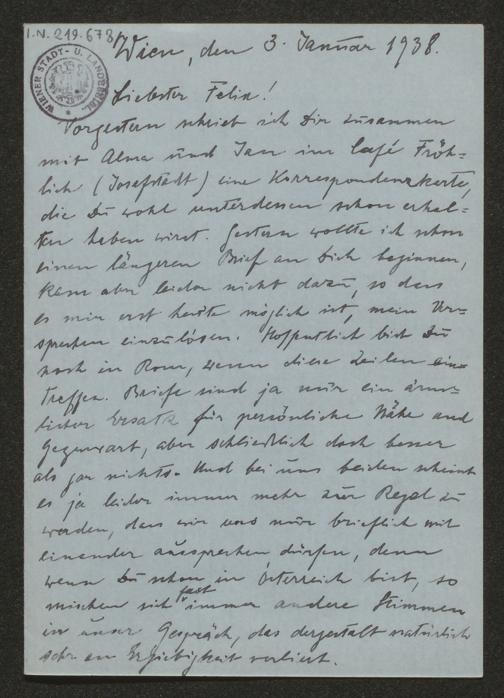 I.N. 219.678
WIENER STADT- U. LANDESBIBL.
Wien, den 3. Januar 1938.
Liebster Felix!
Vorgestern schrieb ich Dir zusammen
mit Alma und Jan im Café Fröh-
lich (Josefstadt) eine Korrespondenzkarte,
die Du wohl unterdessen schon erhal-
ten haben wirst. Gestern wollte ich schon
einen längeren Brief an Dich beginnen,
kam aber leider nicht dazu, so dass
es mir erst heute möglich ist, mein Ver-
sprechen einzulösen. Hoffentlich bist Du
noch in Rom, wenn diese Zeilen ein-
treffen. Briefe sind ja nur ein ärm-
licher Ersatz für persönliche Nähe und
Gegenwart, aber schliesslich doch besser
als gar nichts. Und bei uns beiden scheint
es ja leider immer mehr zur Regel zu
werden, dass wir uns nur brieflich mit
einander aussprechen dürfen, denn
wenn Du schon in Österreich bist, so
mischen sich fast immer andere Stimmen
in unser Gespräch, das dergestalt natürlich
sehr an Ergiebigkeit verliert.